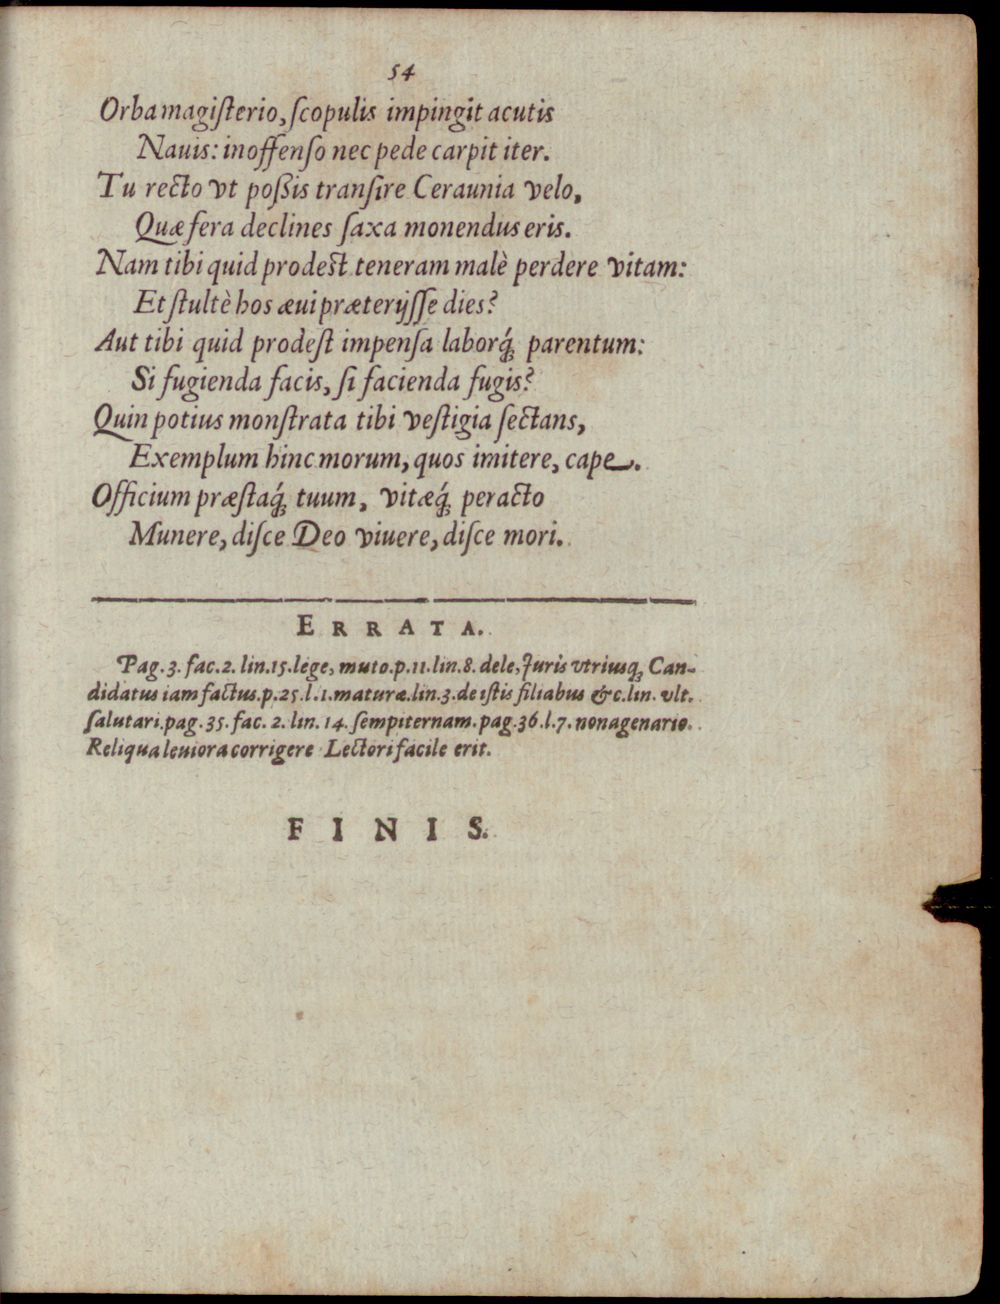 54
Orba magiſterio, ſcopulis impingit acutis
Nauis: inoffenſo nec pede carpit iter.
Tu recto vt poßis tranſire Ceraunia velo,
Quæ fera declines ſaxa monendus eris.
Nam tibi quid prodest teneram malè perdere vitam:
Et ſtultè hos æui præterijſſe dies?
Aut tibi quid prodeſt impenſa laborq́; parentum:
Si fugienda facis, ſi facienda fugis?
Quin potius monſtrata tibi veſtigia ſectans,
Exemplum hinc morum, quos imitere, cape.
Officium præſtaq́; tuum, vitæq́; peracto
Munere, diſce Deo viuere, diſce mori.
ERRATA.
Pag. 3. fac. 2. lin. 15. lege, muto. p. 11. lin. 8. dele, Juris vtriusq; Can-
didatus iam factus. p. 25. l. 1. maturæ. lin. 3. de iſtis filiabus &c. lin. vlt.
ſalutari. pag. 35. fac. 2. lin. 14. ſempiternam. pag. 36. l. 7. nonagenario.
Reliqua leuiora corrigere Lectori facile erit.
FINIS.